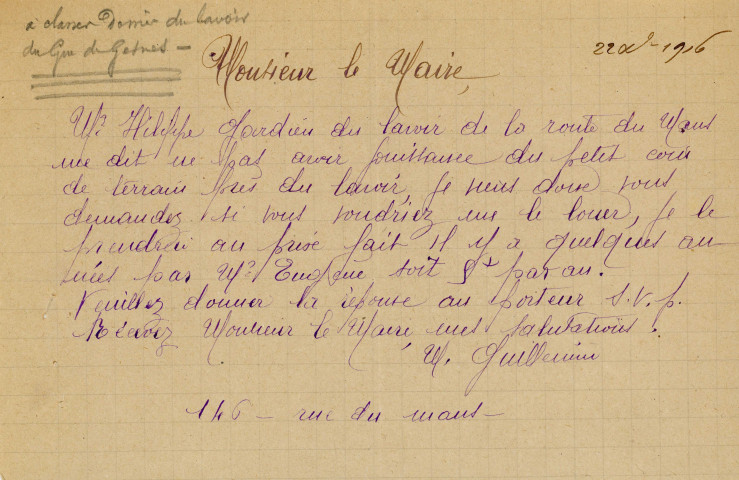 à classer Dossier du lavoir
du Gué de Gesnes —
22 avl 1916
Monsieur le Maire,
Mr Hilippe gardien du lavoir de la route du Mans
me dit ne pas avoir jouissance du petit coin
de terrain près du lavoir, je viens donc vous
demandez si vous voudriez me le louer, je le
prendrai au prise fait il y a quelques an-
nées par Mr Eugène soit 5f par an.
Veuillez donner la réponse au porteur S.V.p.
Recevez Monsieur le Maire, mes salutations.
M. Guillemin
146 — rue du mans —